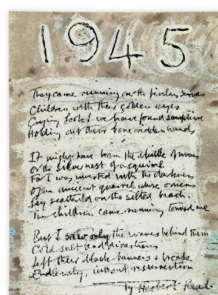 1945
They came running over the perilous sands
Children with their golden eyes
Crying look! we have found samphire
Holding out their bone-ridden hands
It might have been the spittle of wrens
Or the silver nest of a squirrel
For I was invested with the darkness
Of an ancient quarrel whose omens
Lay scatter'd on the silted beach.
The children came running toward me
But I saw only the waves behind them
Cold salt and disastrous
Lift their black banners & break
Endlessly, without resurrection
by Herbert Read